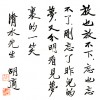 放也放不下忘也忘
不了剛忘了昨兒的
夢又分明看見夢
裏的一笑
先生 胡適